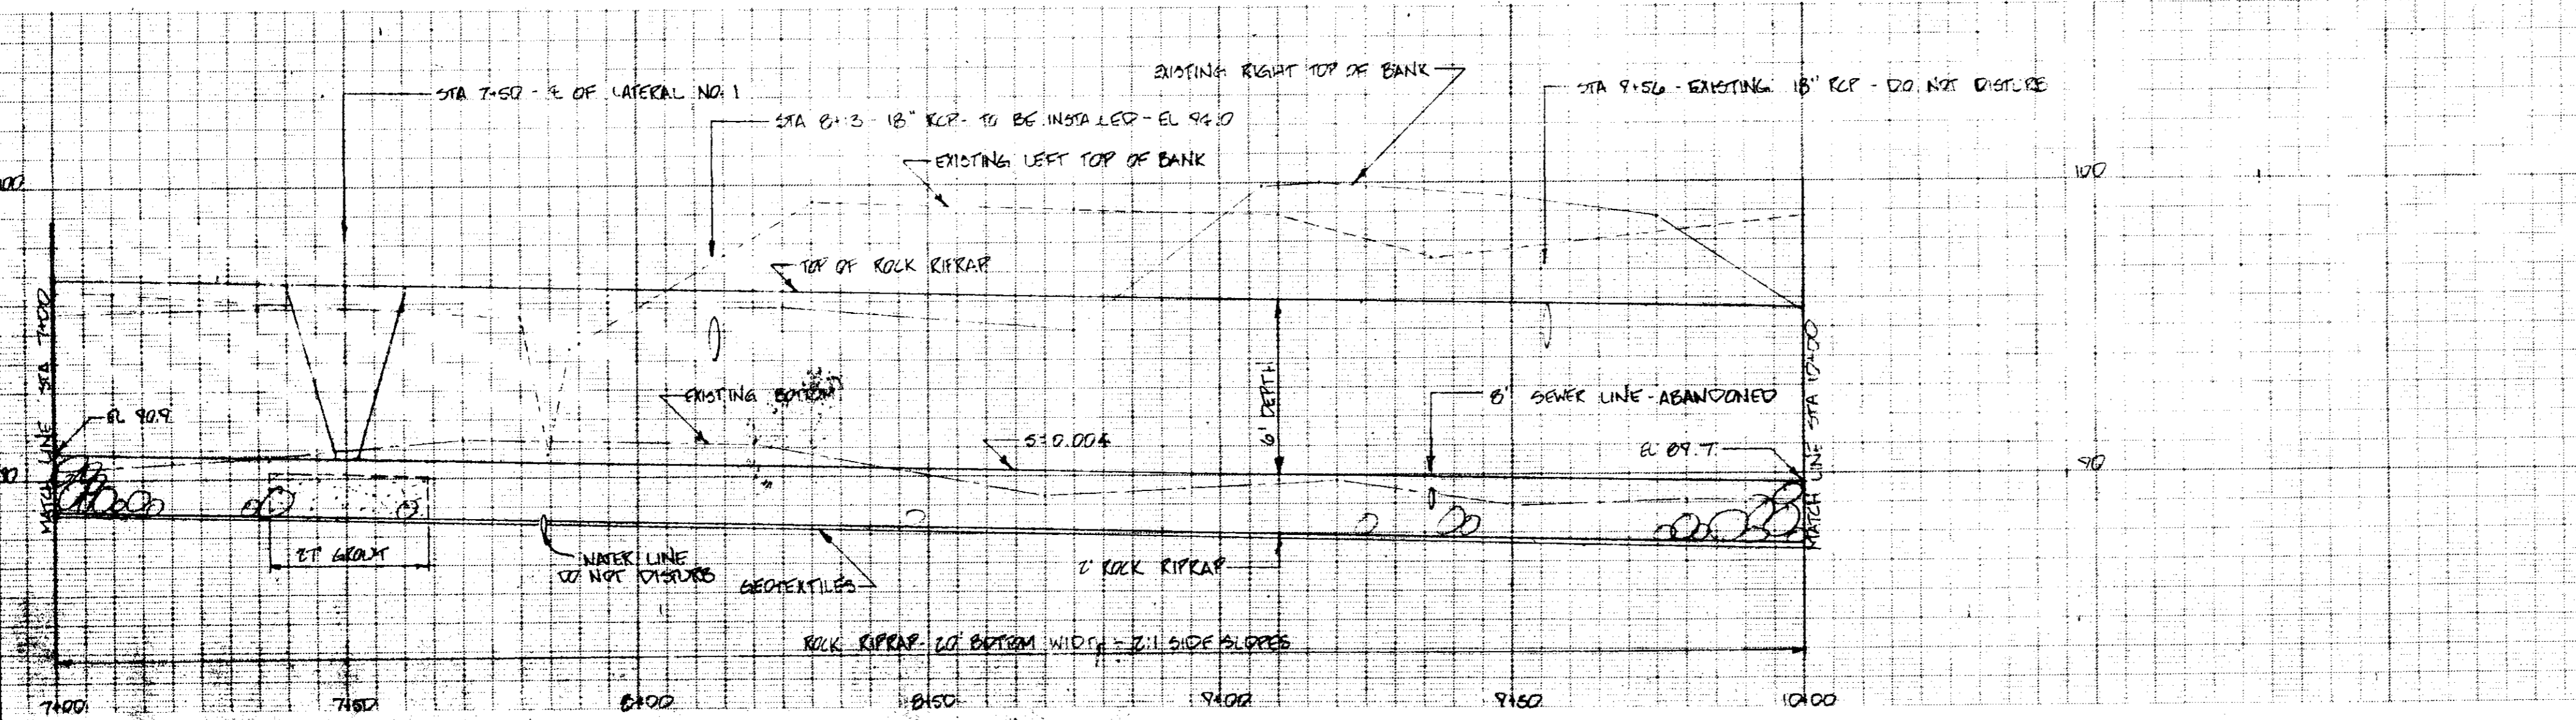 EXISTING RIGHT TOP OF BANK
STA 7+50 - ℄ OF LATERAL NO. 1
STA 9+56 - EXISTING 18" RCP - DO NOT DISTURB
STA 8+13 - 18" RCP - TO BE INSTALLED - EL 94.0
EXISTING LEFT TOP OF BANK
100
100
TOP OF ROCK RIPRAP
MATCH LINE STA 7+00
EXISTING BOTTOM
6' DEPTH
8" SEWER LINE - ABANDONED
EL 90.9
S=0.004
EL 89.7
MATCH LINE STA 10+00
90
90
27' GROUT
WATER LINE
DO NOT DISTURB
GEOTEXTILES
2' ROCK RIPRAP
ROCK RIPRAP - 20' BOTTOM WIDTH - 2:1 SIDE SLOPES
7+00
7+50
8+00
8+50
9+00
9+50
10+00